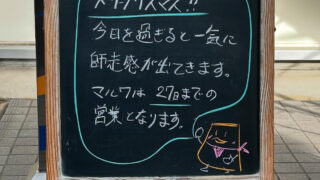 メリークリスマス!!
今日を過ぎると一気に
師走感が出てきます。
マルワは 27日までの
営業となります。